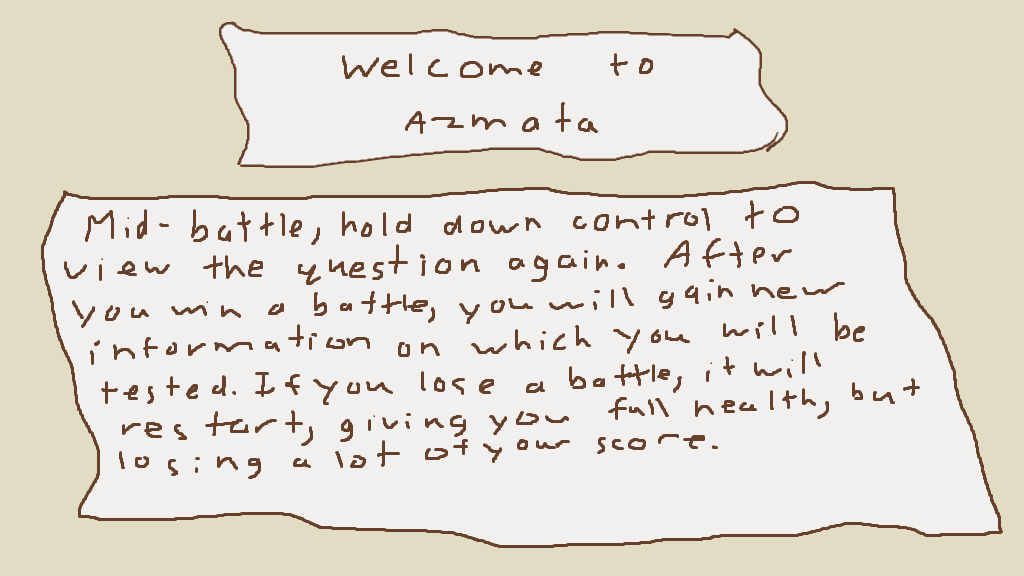 Welcome to
Azmata
Mid-battle, hold down control to
view the question again. After
you win a battle, you will gain new
information on which you will be
tested. If you lose a battle, it will
restart, giving you full health, but
losing a lot of your score.